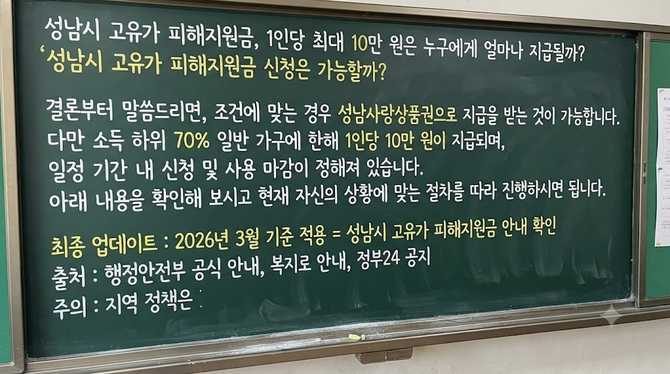 성남시 고유가 피해지원금, 1인당 최대 10만 원은 누구에게 얼마나 지급될까?
‘성남시 고유가 피해지원금 신청은 가능할까?
결론부터 말씀드리면, 조건에 맞는 경우 성남사랑상품권으로 지급을 받는 것이 가능합니다.
다만 소득 하위 70% 일반 가구에 한해 1인당 10만 원이 지급되며,
일정 기간 내 신청 및 사용 마감이 정해져 있습니다.
아래 내용을 확인해 보시고 현재 자신의 상황에 맞는 절차를 따라 진행하시면 됩니다.
최종 업데이트 : 2026년 3월 기준 적용 = 성남시 고유가 피해지원금 안내 확인
출처 : 행정안전부 공식 안내, 복지로 안내, 정부24 공지
주의 : 지역 정책은